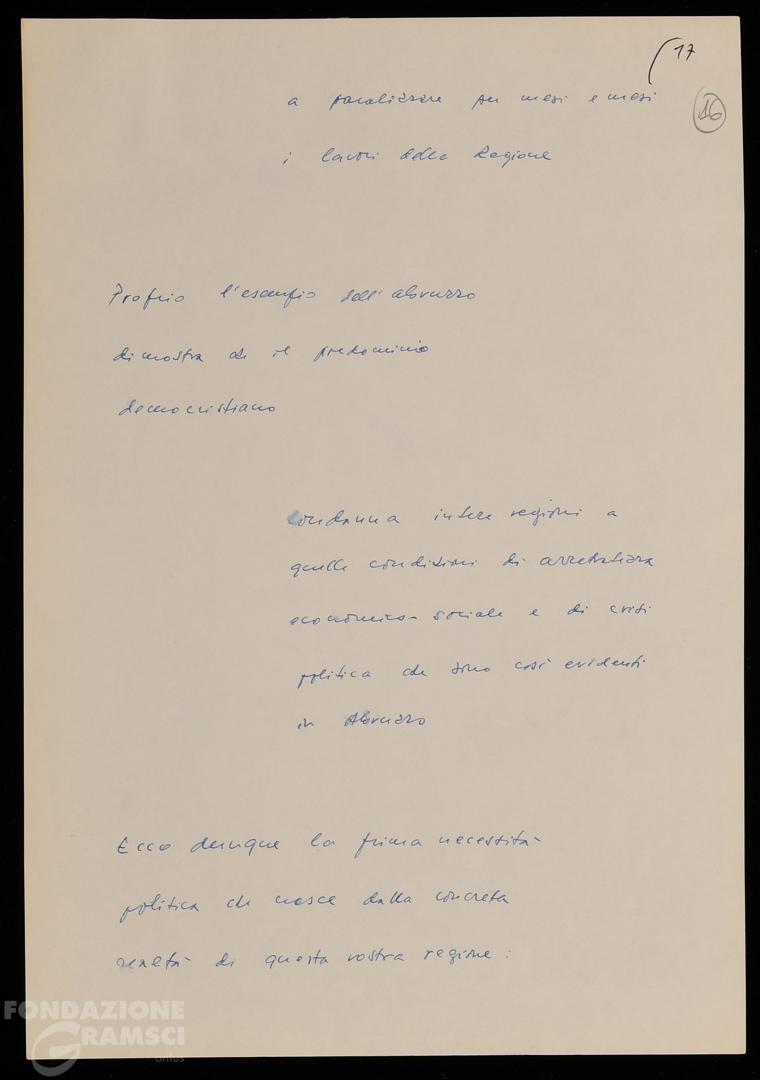 17
16
a paralizzare per mesi e mesi
i lavori della Regione
Proprio l'esempio dell'abruzzo
dimostra che il predominio
democristiano
condanna intere regioni a
quelle condizioni di arretratezza
economico-sociale e di crisi
politica che sono così evidenti
in Abruzzo
Ecco dunque la prima necessità
politica che nasce dalla concreta
realtà di questa vostra regione:
FONDAZIONE
GRAMSCI
onlus